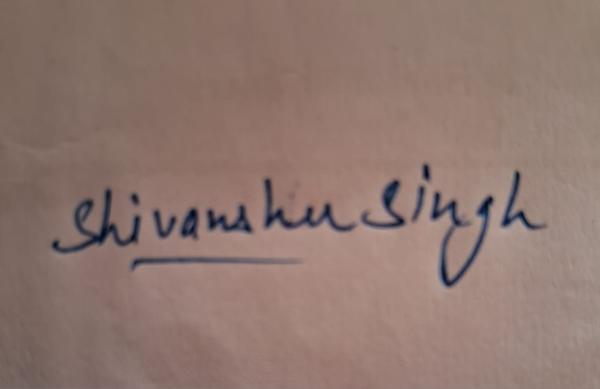 Shivanshu Singh